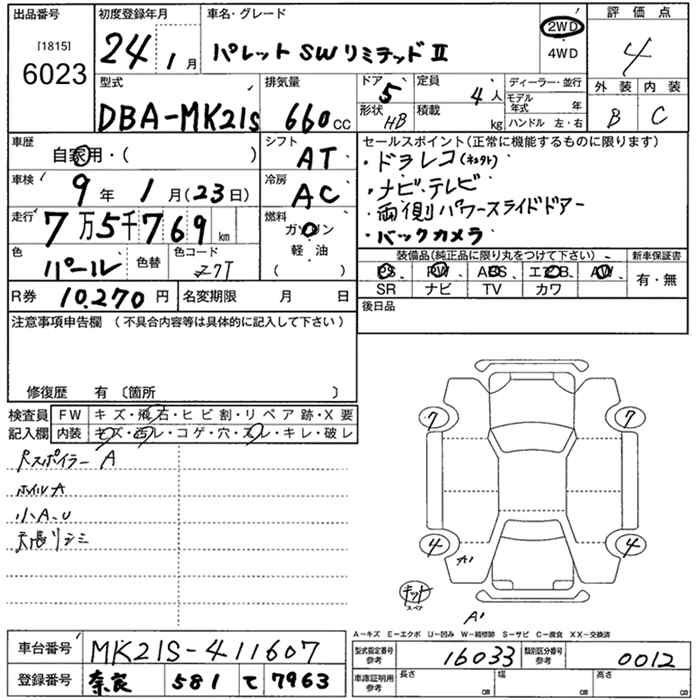 出品番号 初度登録年月 車名・グレード 評価点
[1815] 6023 24年1月 パレット SW リミテッド Ⅱ 2WD 4WD 4
外装 内装
B C
型式 排気量 ドア 定員 ディーラー・並行
DBA-MK21S 660cc 5 4人 モデル年式 年
形状 HB 積載 kg ハンドル 左・右
車歴 シフト セールスポイント(正常に機能するものに限ります)
自家用・( ) AT ・ドラレコ(ネクスト)
車検 冷房
9年1月(23日) AC ・ナビ・テレビ
走行 燃料 ・両側パワースライドドアー
7万5千769km ガソリン ・バックカメラ
色 色替 色コード 軽油 装備品(純正品に限り丸をつけて下さい) 新車保証書
パール Z7T ( ) PS PW ABS エアB. AW 有・無
SR ナビ TV カワ
R券 10,270円 名変期限 月 日 後日品
注意事項申告欄(不具合内容等は具体的に記入して下さい)
修復歴 有〔箇所 〕
検査員 FW キズ・飛石・ヒビ割・リペア跡・X要
記入欄 内装 キズ・汚レ・コゲ・穴・スレ・キレ・破レ
Rスポイラー A
ホイル A
小A.U
天張リジミ
7 7
4 4
A1
キット
スペア
A1
A-キズ E-エクボ U-凹み W-補修跡 S-サビ C-腐食 XX-交換済
車台番号 MK21S-411607 型式指定番号 参考 16033 類別区分番号 参考 0012
登録番号 奈良 581 て 7963 車庫証明用 参考 長さ cm 幅 cm 高さ cm